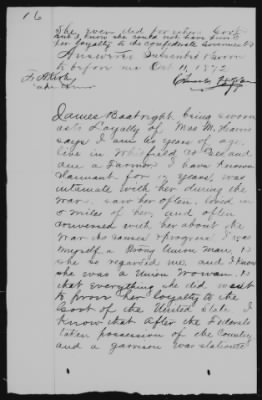 16
She ever did for either Govt
and I know she could not have proven
her loyalty to the confederate Government
Answers Subscribed & sworn
to before me Oct 1872
James Boatright, being sworn
as to Loyalty of Mrs M.
says I am 60 years of age
live in Whitfield Co. Ga. and
am a Farmer I have known
Claimant for 12 years, was
intimate with her during the
war, saw her often, lived in
miles of her, and often
conversed with her about the
War its causes & progress. I was
myself a strong Union man &
she so regarded me, and I know
she was a Union Woman. &
that everything she did went
to prove her loyalty to the
Govt of the United State I
know that after the Federals
taken possession of the Country
and a garrison was stationed